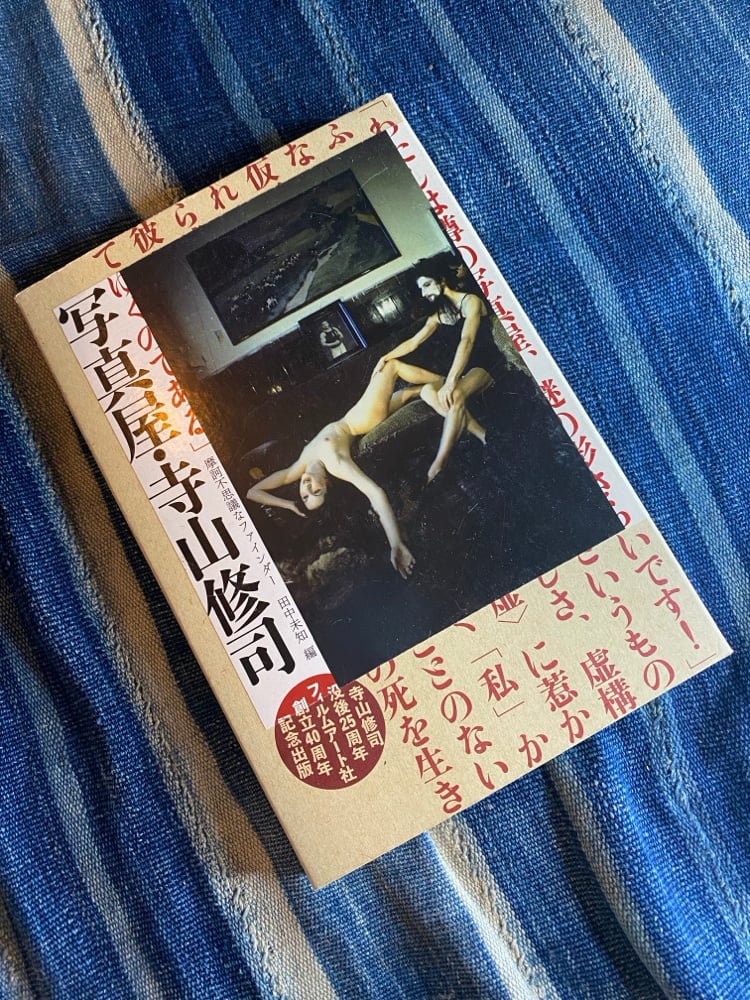 「わたしは噂の写真屋、謎の影さらいです!」
ふ
というもの
な
しさ、虚構
仮
虚〉に惹か
れ
、「私」か
ら
ことのない
彼
の死を生き
て
ゆくのである」
写真屋・寺山修司
摩訶不思議なファインダー 田中未知 編
寺山修司
没後25周年
フィルムアート社
創立40周年
記念出版